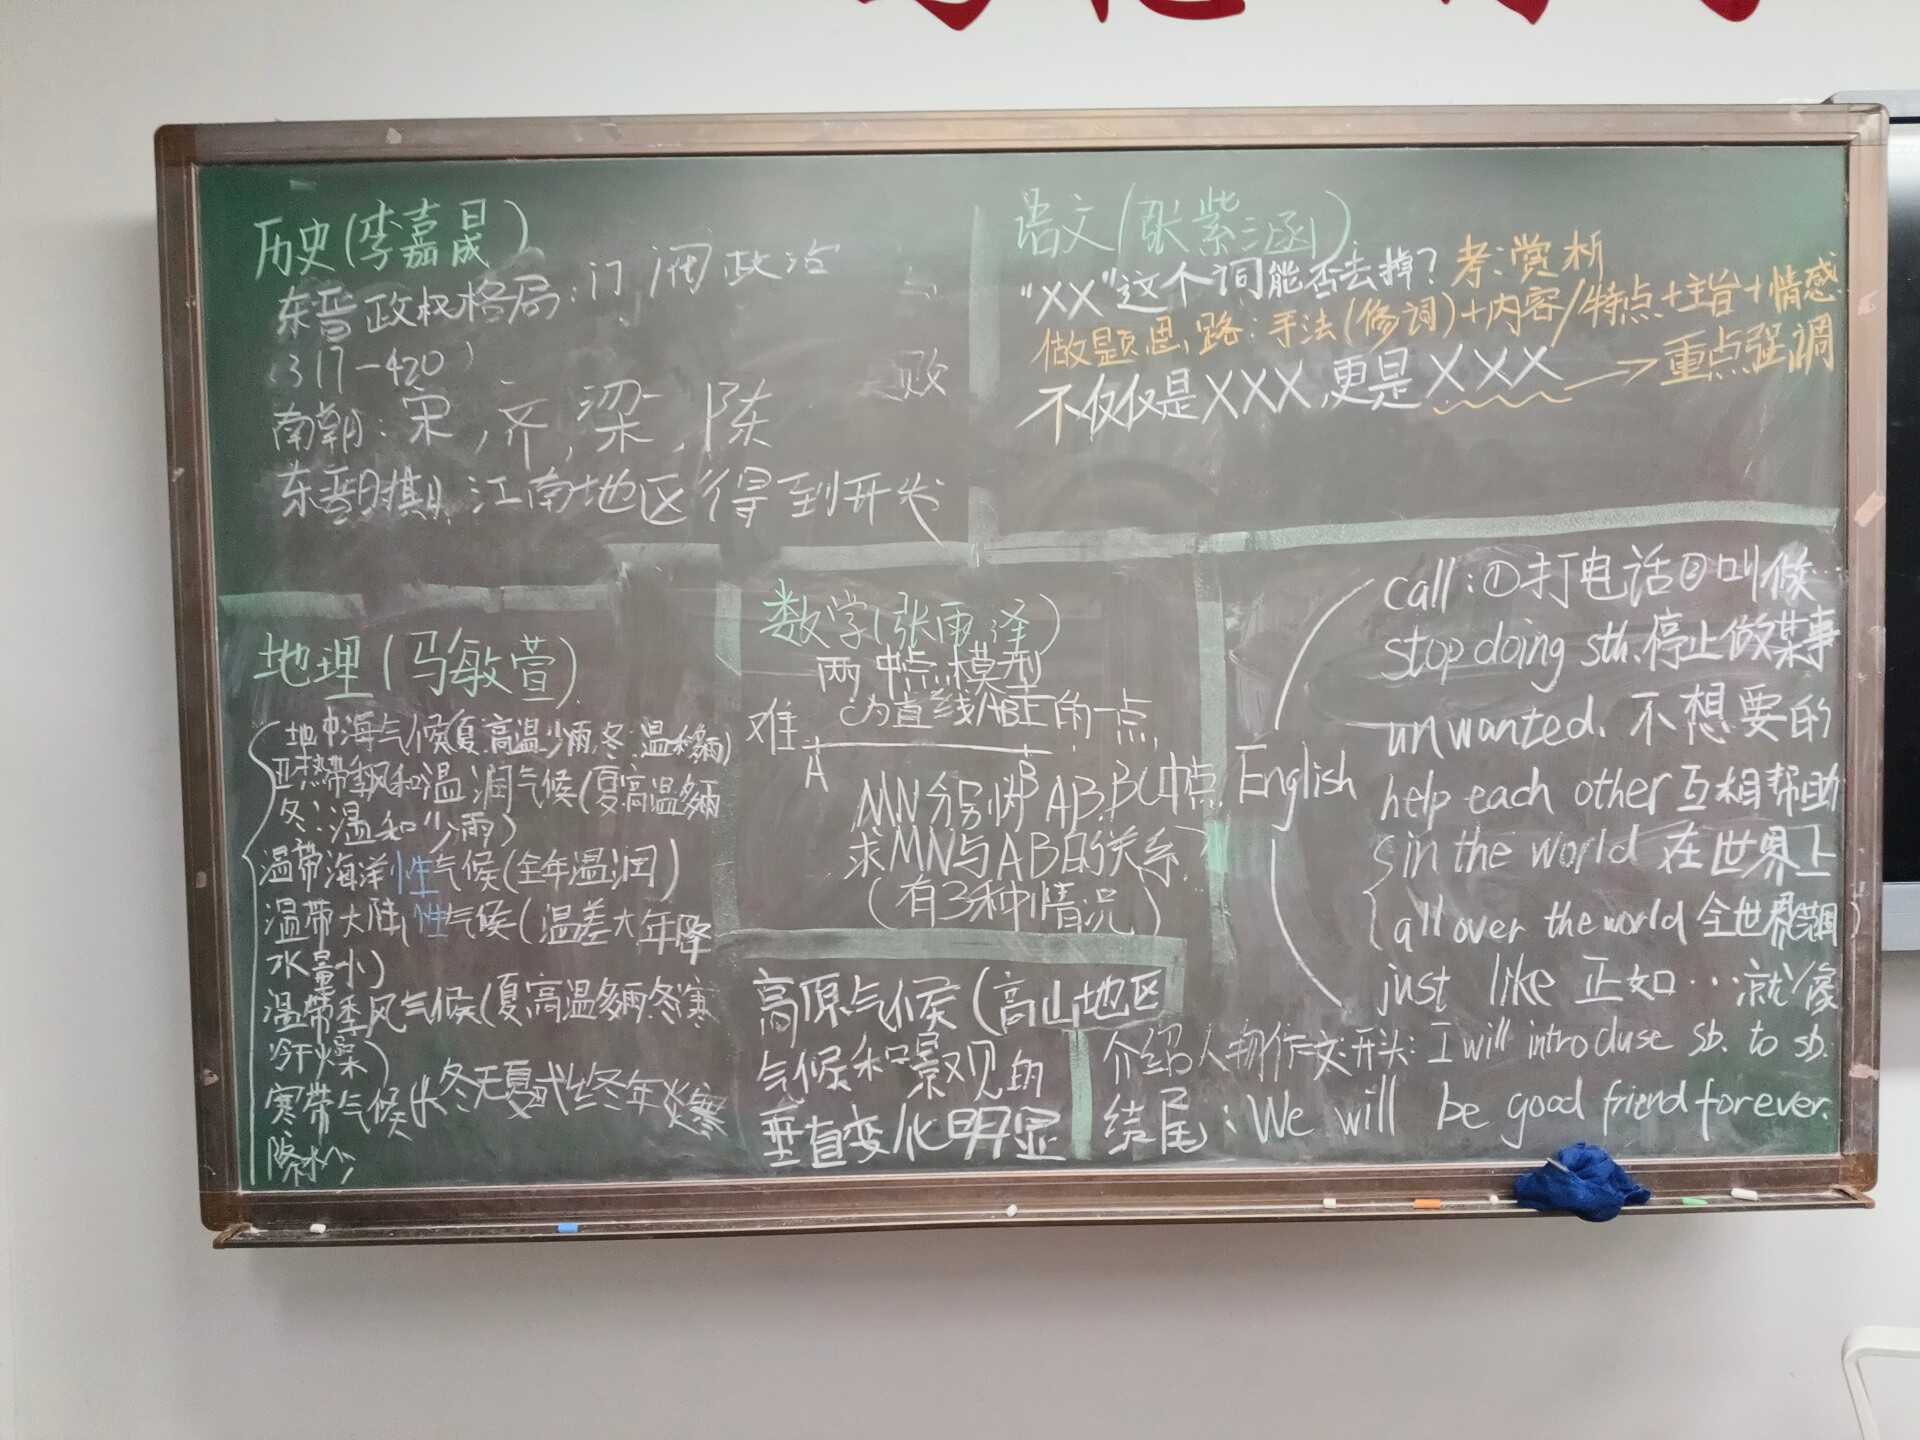 历史(李嘉晟)
东晋政权格局:门阀政治
(317-420)
败
南朝:宋,齐,梁,陈
东晋时期:江南地区得到开发
语文(张紫涵)
“XX”这个词能否去掉?考:赏析
做题思路:手法(修词)+内容/特点+主旨+情感
不仅仅是XXX,更是XXX→重点强调
地理(马敏萱)
地中海气候(夏:高温少雨,冬:温和多雨)
亚热带季风和温润气候(夏高温多雨
冬:温和少雨)
温带海洋性气候(全年温润)
温带大陆性气候(温差大年降
水量小)
温带季风气候(夏:高温多雨冬:寒
冷干燥)
寒带气候(长冬无夏或
降水少
数学(张雨泽)
两中点模型
难
C为直线AB上的一点,
A B
MN分别为AB.BC中点,
求MN与AB的关系?
(有3种情况)
高原气候(高山地区
气候和景观的
垂直变化明显
English
call:①打电话②叫做…
stop doing sth.停止做某事
unwanted.不想要的
help each other 互相帮助
in the world 在世界上
all over the world 全世界范围
just like 正如…就像
介绍人物作文:开头:I will introduse sb. to sb.
结尾:We will be good friend forever.